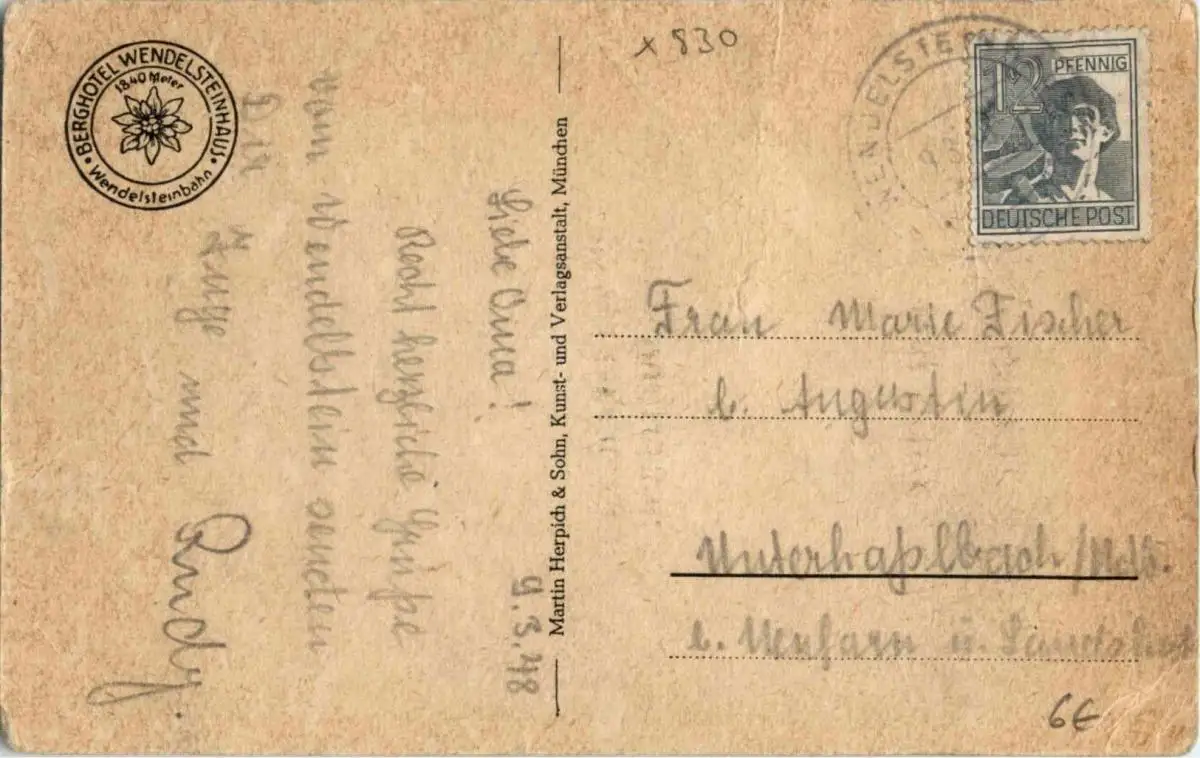 BERGHOTEL WENDELSTEINHAUS
1840 Meter
Wendelsteinbahn
x 830
WENDELSTEINH
12 PFENNIG
DEUTSCHE POST
9.3.48
Liebe Oma!
Recht herzliche Grüße
vom Wendelstein senden
Dir
Inge und
Rudy.
Martin Herpich & Sohn, Kunst- und Verlagsanstalt, München
Frau Marie Fischer
b. Augustin
Unterhaßlbach/Ndb.
b. Neufarn ü. Landshut
6€